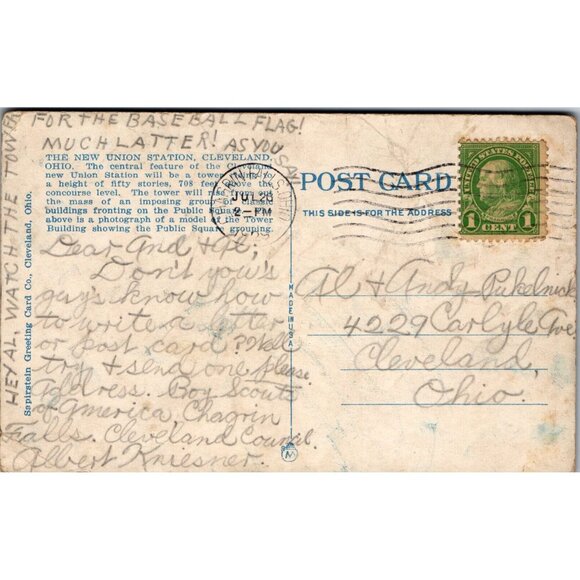 HEY AL WATCH THE TOWER
FOR THE BASEBALL FLAG!
MUCH LATTER! AS YOU
THE NEW UNION STATION, CLEVELAND,
OHIO. The central feature of the Cleveland
new Union Station will be a tower rising to
a height of fifty stories, 708 feet above the
concourse level. The tower will rise from out
the mass of an imposing group of
buildings fronting on the Public Square
above is a photograph of a model of the Tower
Building showing the Public Square grouping.
Sapirstein Greeting Card Co., Cleveland, Ohio.
Dear And + Al,
Don't you's
guy's know how
to write a letter
or post card? Well
try + send one please
Address. Boy Scouts
of America, Chagrin
Falls. Cleveland Council.
Albert Kniesner.
CHAGRIN FALLS, OHIO
JUL 28
2-PM
POST CARD
THIS SIDE IS FOR THE ADDRESS
MADE IN USA
UNITED STATES POSTAGE
1 CENT 1
Al + Andy
4229 Carlyle Ave
Cleveland,
Ohio.
M